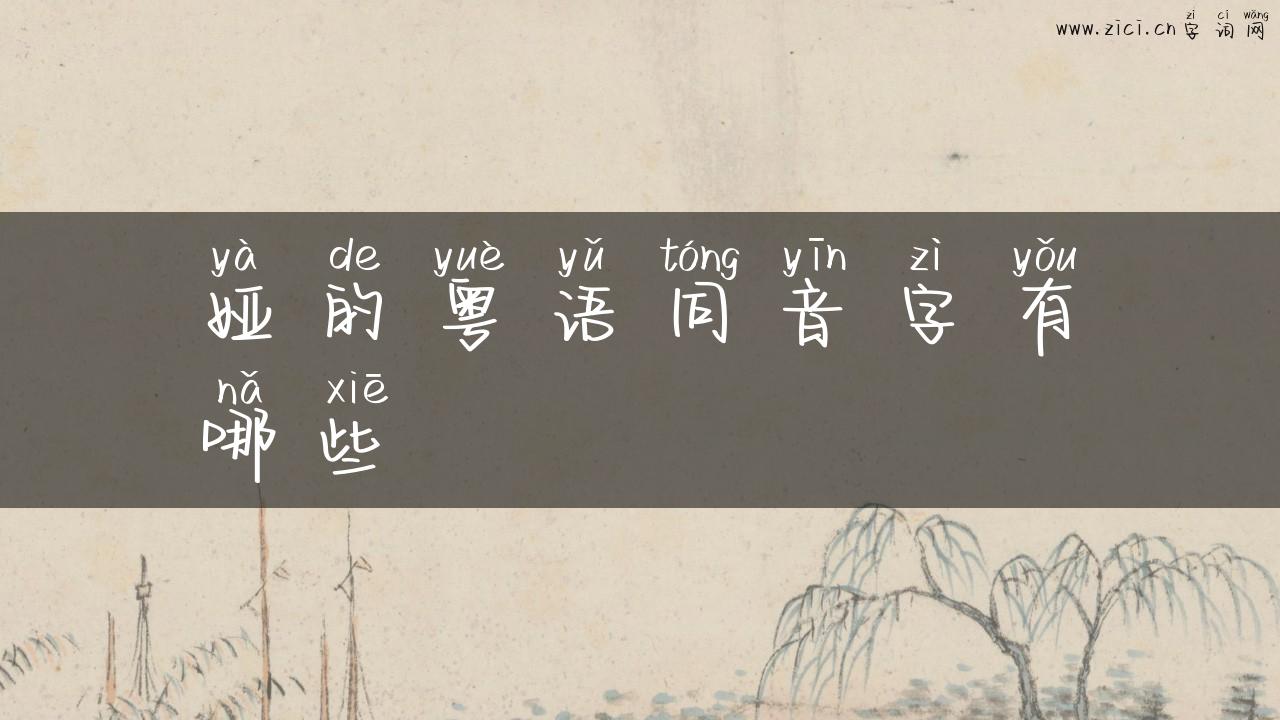 zì cí wǎng
www.zici.cn 字词网
yà de yuè yǔ tóng yīn zì yǒu
娅的粤语同音字有
nǎ xiē
哪些